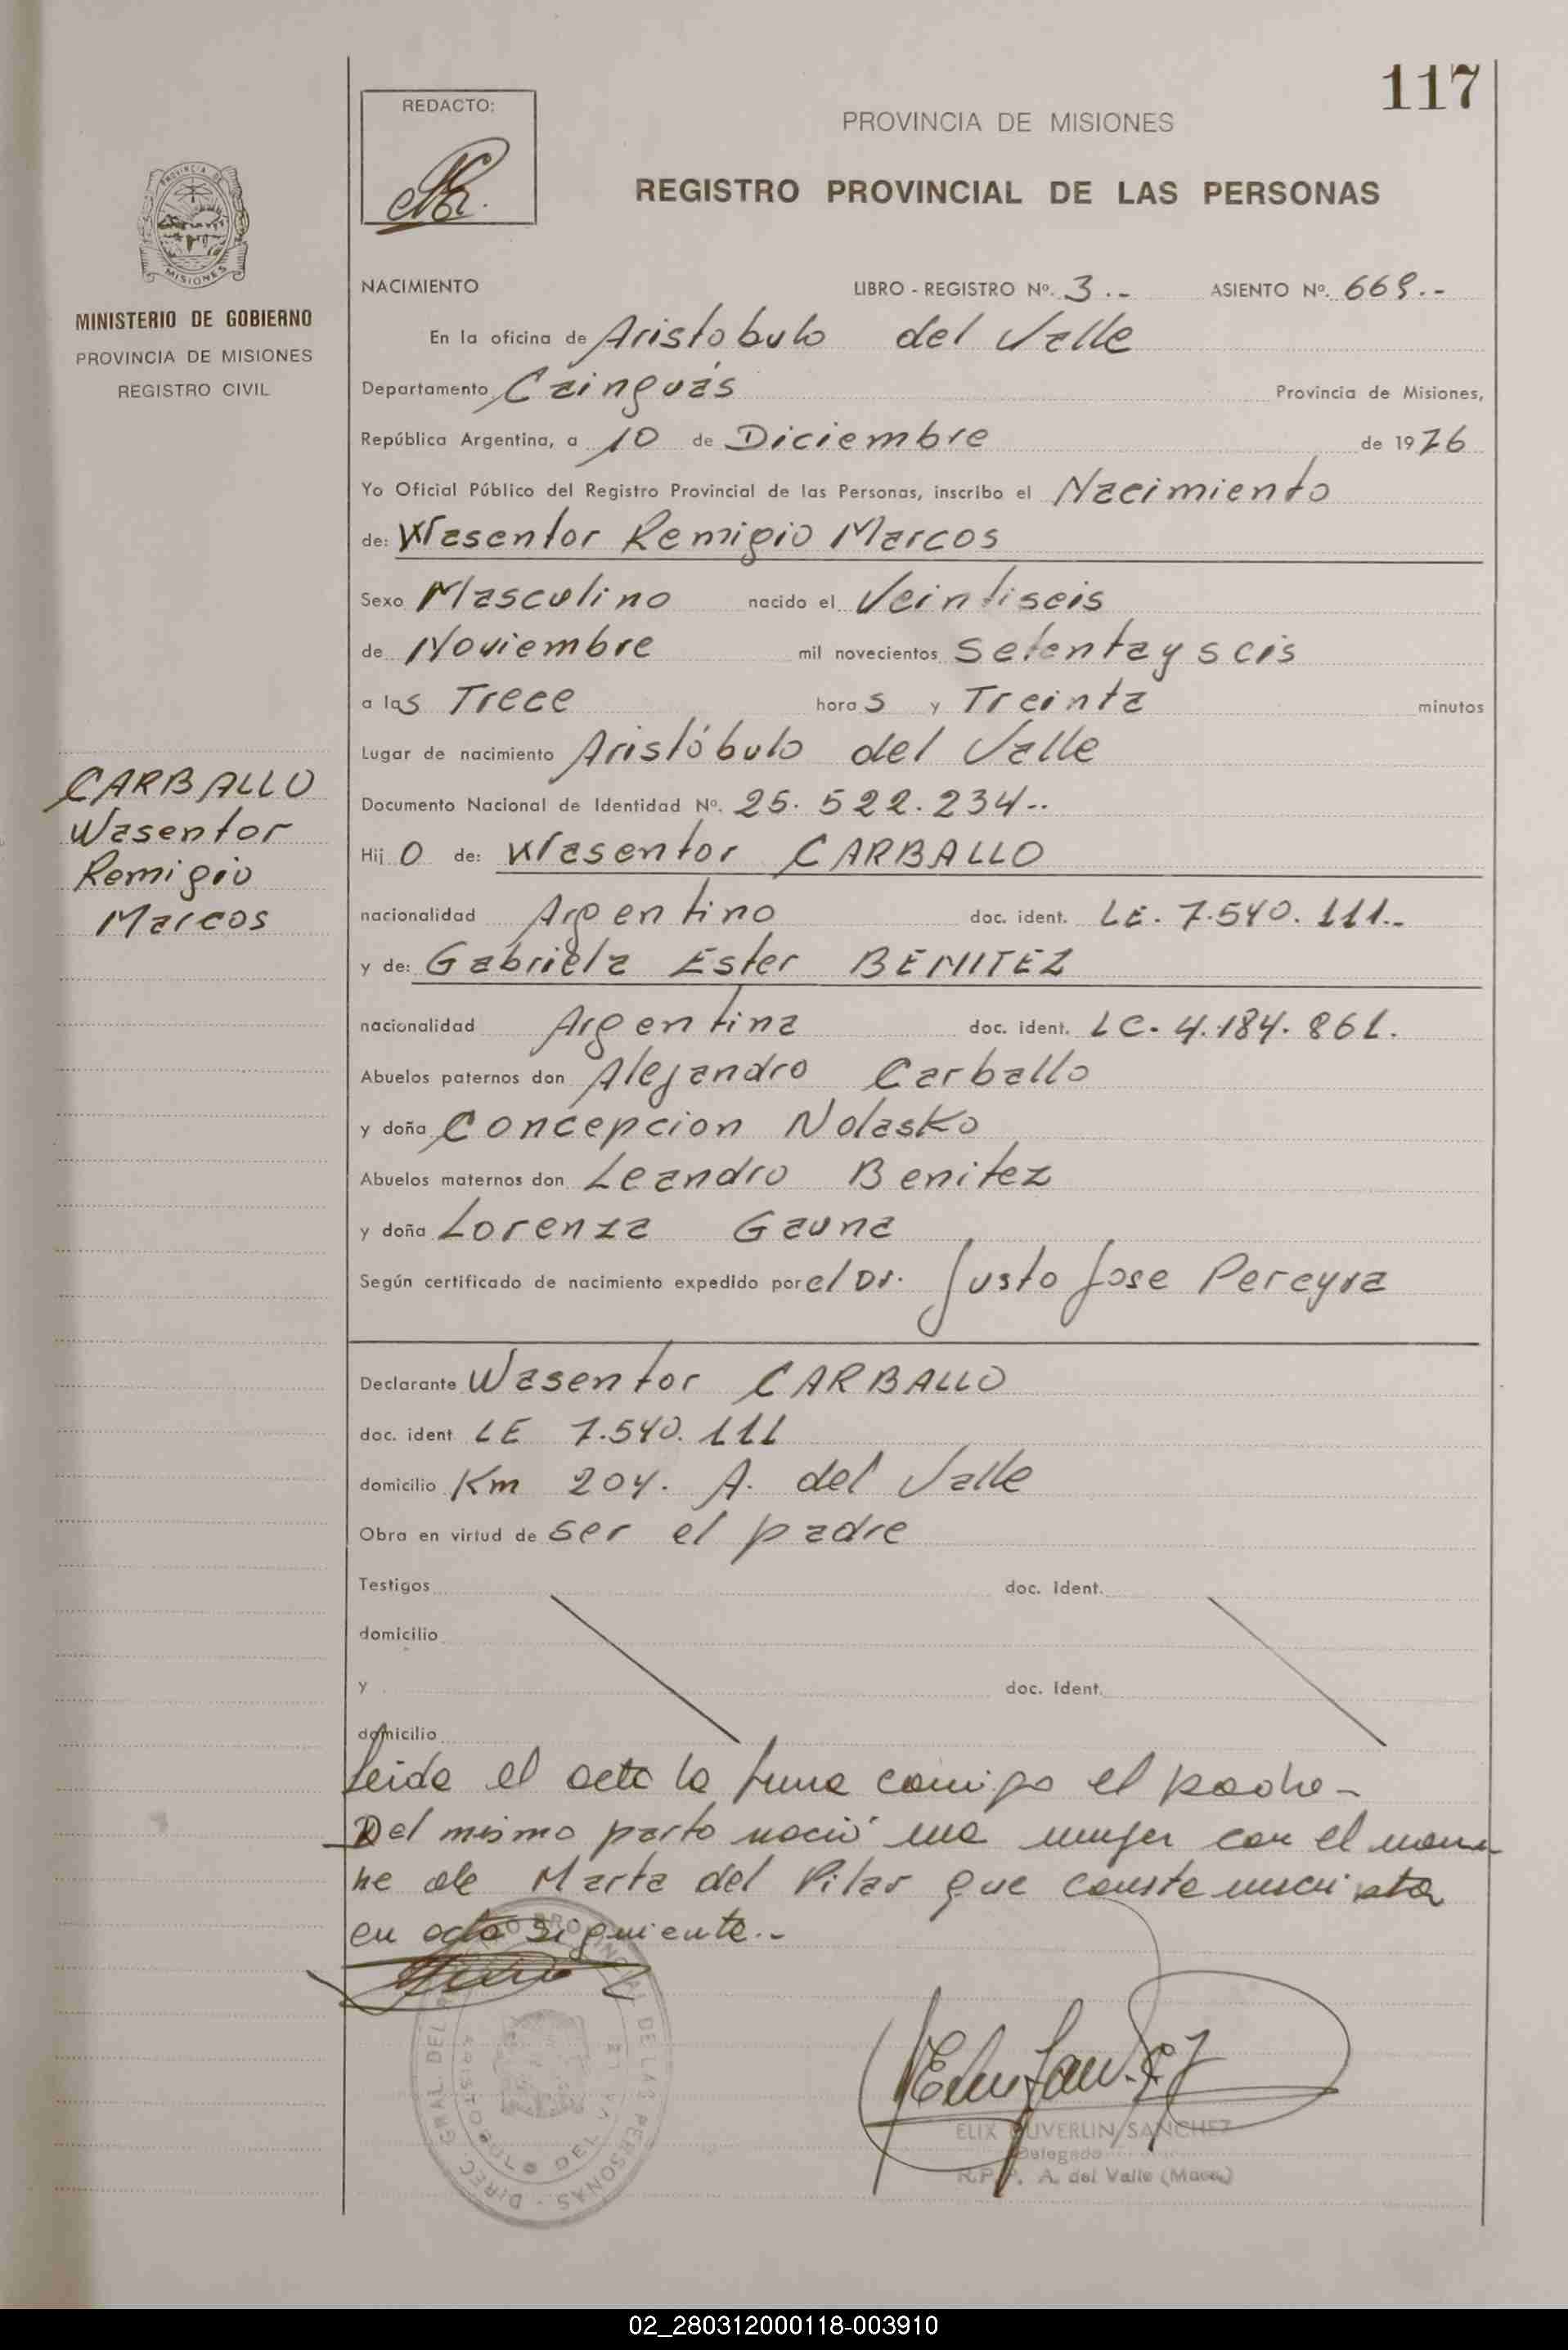 117
REDACTO:
PROVINCIA DE MISIONES
REGISTRO PROVINCIAL DE LAS PERSONAS
PROVINCIA DE
MISIONES
MINISTERIO DE GOBIERNO
PROVINCIA DE MISIONES
REGISTRO CIVIL
NACIMIENTO LIBRO - REGISTRO Nº. 3.- ASIENTO Nº. 669.-
En la oficina de Aristobulo del Valle
Departamento Cainguás Provincia de Misiones,
República Argentina, a 10 de Diciembre de 1976
Yo Oficial Público del Registro Provincial de las Personas, inscribo el Nacimiento
de: Wasentor Remigio Marcos
Sexo Masculino nacido el Veintiseis
de Noviembre mil novecientos setentay seis
a las Trece horas y Treinta minutos
Lugar de nacimiento Aristóbulo del Valle
CARBALLO
Wasentor
Remigio
Marcos
Documento Nacional de Identidad Nº. 25.522.234..
Hijo de: Wasentor CARBALLO
nacionalidad Argentino doc. ident. LE. 7.540.111..
y de: Gabriela Ester BENITEZ
nacionalidad Argentina doc. ident. LC. 4.184.861.
Abuelos paternos don Alejandro Carballo
y doña Concepcion Nolasko
Abuelos maternos don Leandro Benitez
y doña Lorenza Gauna
Según certificado de nacimiento expedido por el Dr. Justo Jose Pereyra
Declarante Wasentor CARBALLO
doc. ident LE 7.540.111
domicilio Km 204. A. del Valle
Obra en virtud de ser el padre
Testigos doc. ident.
domicilio
y doc. ident.
domicilio
Leida el acta la firma conmigo el padre-
Del mismo parto nació una mujer con el nom-
bre de Marta del Pilar que consta inscripta
en acta siguiente.-
DIREC. GRAL. DEL REGISTRO PROVINCIAL DE LAS PERSONAS
ARISTOBULO DEL VALLE
ELIX OUVERLIN SANCHEZ
Delegado
R.P.P. A. del Valle (Mnes)
02_280312000118-003910